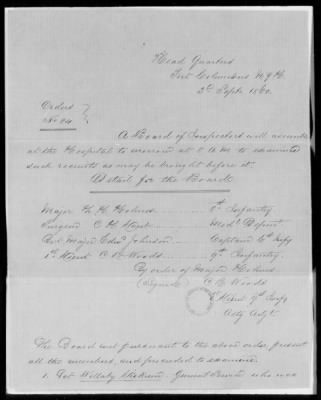 Head Quarters
Fort Columbus N.Y.H.
3d Septr 1860.
Orders
No.
A Board of Inspectors will assemble
at the Hospital to morrow at A.M. to examine
such recruits as may be brought before it.
Detail for the Board.
Major T. H. Holmes 8th Infantry
Surgeon C. H. Medl Deptmt
Bvt Major Edwd Johnson Captain 6th Infy
1st Lieut C. R. Woods 9th Infantry.
By order of Major Holmes
(Signed) C R Woods
1st Lieut 9th Infy
Actg Adjt.
The Board met pursuant to the above order, present
all the members, and proceeded to examine
1. Pvt General Service who was